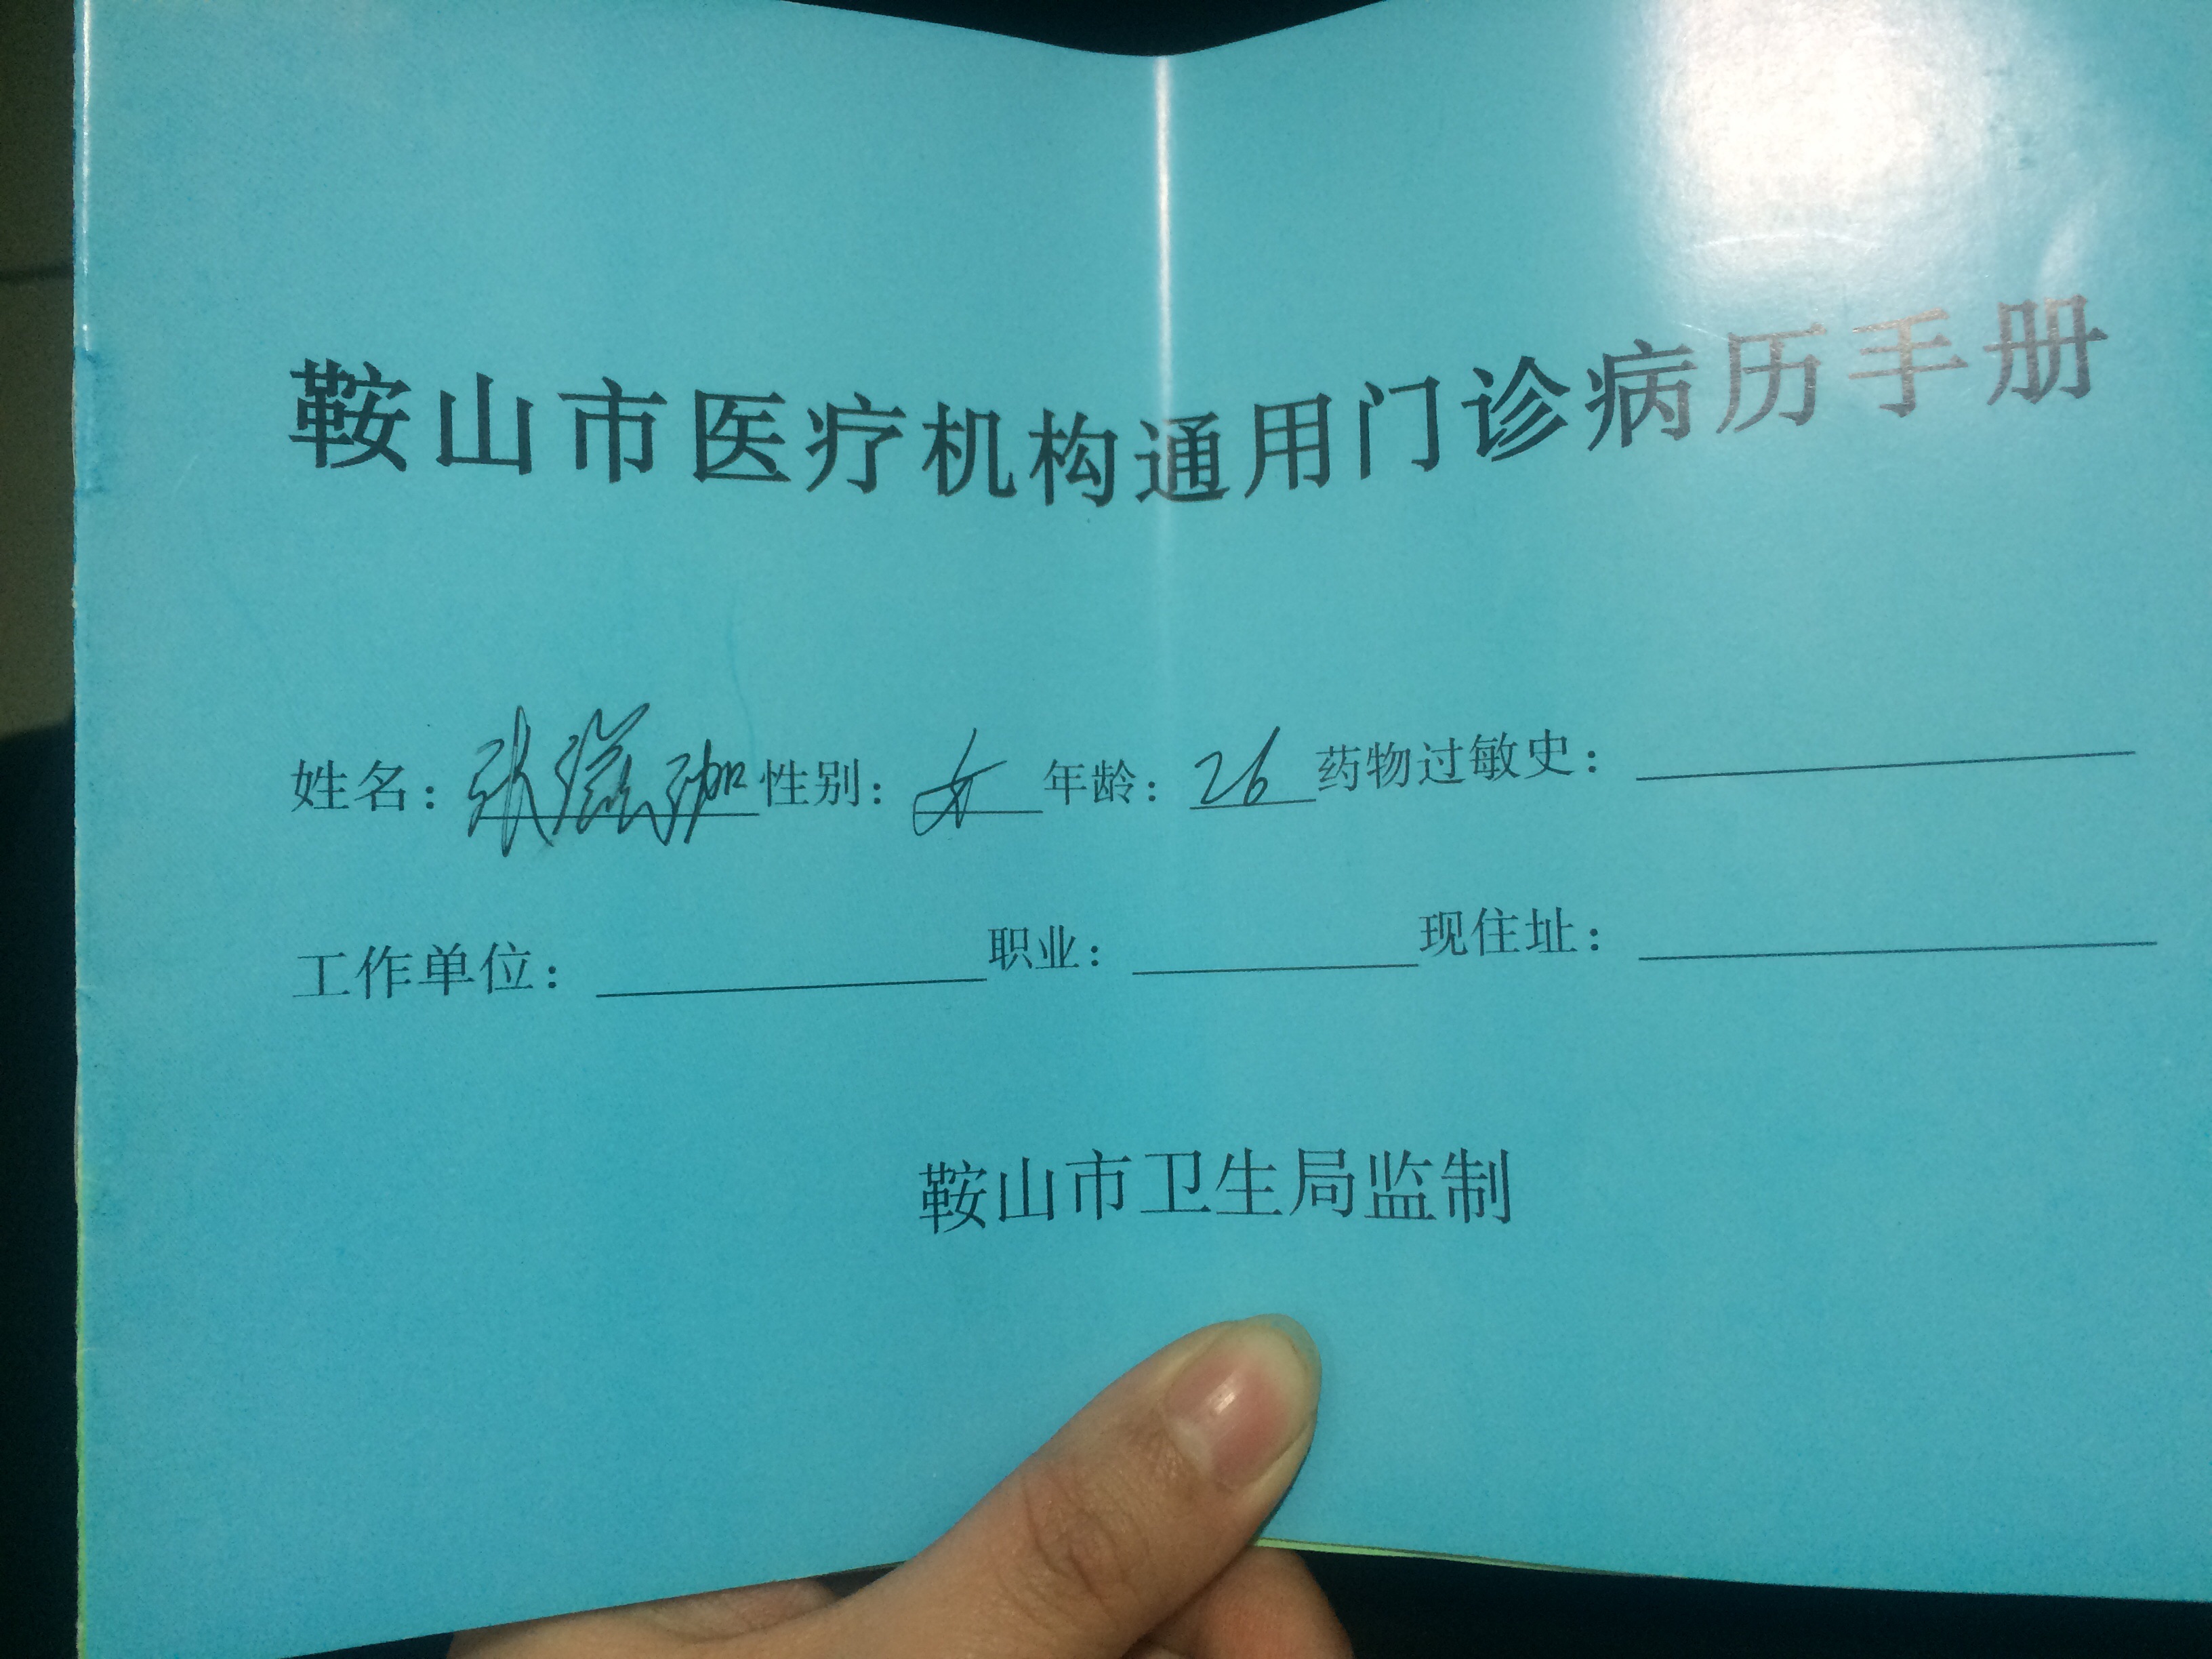 鞍山市医疗机构通用门诊病历手册
姓名：张 性别：女 年龄：26 药物过敏史：
工作单位： 职业： 现住址：
鞍山市卫生局监制